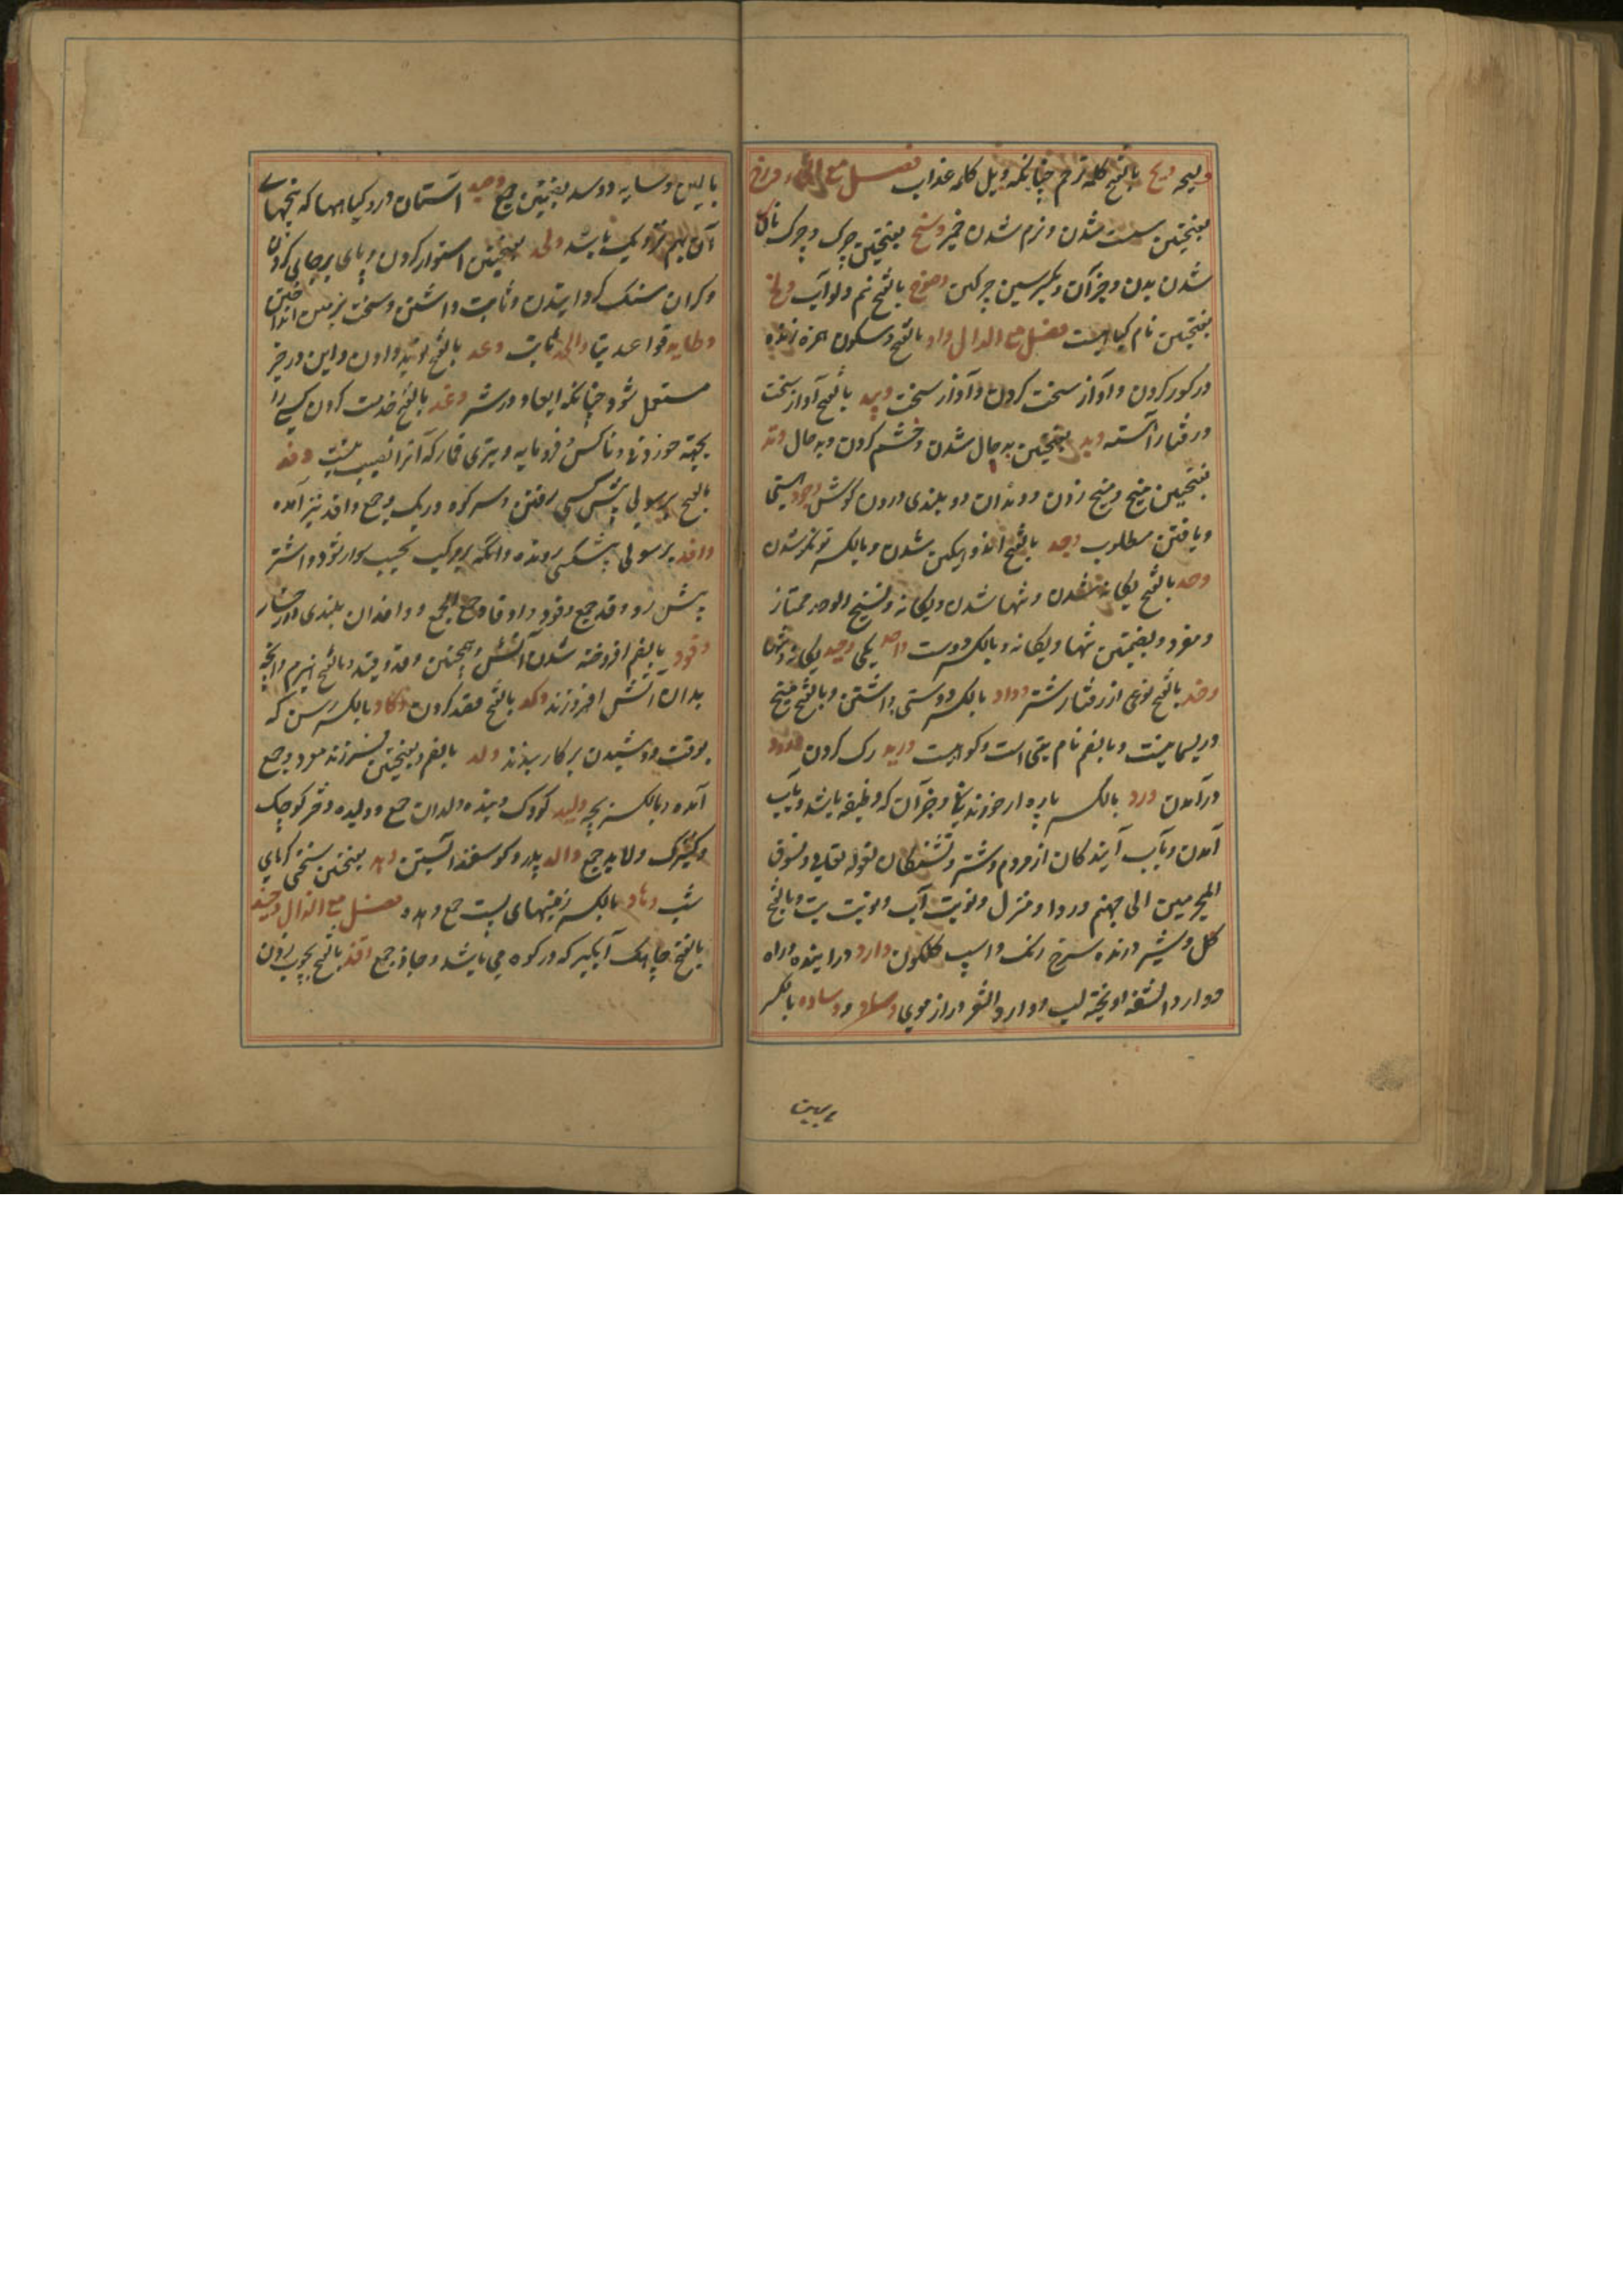 ولیحه ویح بالفتح کلمه ترحم چنانکه ویل کلمه عذاب فصل مع الخاء ورخ
بفتحتین سست شدن و نرم شدن خمیر وسخ بفتحتین چرک و چرک ناک
شدن بدن و جز آن و بکسر سین چرکین وضوخ بالفتح نیم دلو آب ولخ
بفتحتین نام گیاهیست فصل مع الدال واد بالفتح و سکون همزه زنده
در کور کردن و آواز سخت کردن و آواز سخت وئید بالفتح آواز سخت
و رفتار آهسته وبد بفتحتین بد حال شدن و خشم کردن و بد حال وتد
بفتحتین میخ و میخ زدن و وتدان دو بلندی درون کوش وجود هستی
و یافتن مطلوب وجد بالفتح اندوهکین شدن و بالکسر توانکر شدن
وحد بالفتح یکانه شدن و تنها شدن و یکانه و نسیج الوحد ممتاز
و مفرد و بضمتین تنها و یکانه و بالکسر دوست واحد یکی وحید یکانه و تنها
وخد بالفتح نوعی از رفتار شتر وداد بالکسر دوستی داشتن و بالفتح میخ
در آمدن ورد بالکسر پاره از خوندنی و جز آن که وظیفه باشد و بآب
آمدن و بآب آیندکان از مردم و شتر و تشنکان لقوله تعالی و نسوق
المجرمین الی جهنم وردا و منزل و نوبت آب و نوبت تب و بالفتح
کل و شیر درنده سرخ رنک و اسپ کلکون وارد درآینده و راه
و وارد الشفة آویخته لب و وارد الشعر دراز موی وساد و وساده بالکسر
بالین
بالین و سایه و وسد بضمتین جمع وصید آستان در و کیاهها که بیخهای
آن بهم نزدیک باشد وطد بفتحتین استوار کردن و پای بر جای کردن
و کران سنک کردانیدن و ثابت داشتن و سخت بزمین انداختن
وطاید قواعد بنا واطد ثابت وعد بالفتح نوید دادن و این در خیر
مستعمل شود چنانکه ایعاد در شر وغد بالفتح خدمت کردن کسی را
بجهة خوردنی و ناکس و فرومایه و تیری قمار که آنرا نصیب نیست وفد
بالفتح برسولی پیش کسی رفتن و سر کوه و ریک و جمع وافد نیز آمده
وافد برسولی پیش کسی رونده
پیش رو و وفد جمع وفود و اوفاد جمع الجمع و وافدان بلندی دو رخسار
وقود بالضم افروخته شدن آتش و همچنین وقد وقید و بالفتح هیزم و آنچه
بدان آتش افروزند وکد بالفتح قصد کردن وکاد بالکسر رسن که
بوقت دوشیدن بر کاو بندند ولد بالضم و بفتحتین فرزند مفرد و جمع
آمده و بالکسر بچه ولید کودک و بنده ولدان جمع و ولیده دختر کوچک
و کنیزک ولاید جمع والد پدر و کوسفند آبستن ومد بفتحتین سختی کرمای
شب وهاد بالکسر زمینهای پست جمع وهده فصل مع الذال وجیذ
بالفتح چاهک آبکیر که در کوه می باشد وجاذ جمع وقذ بالفتح بچوب زدن